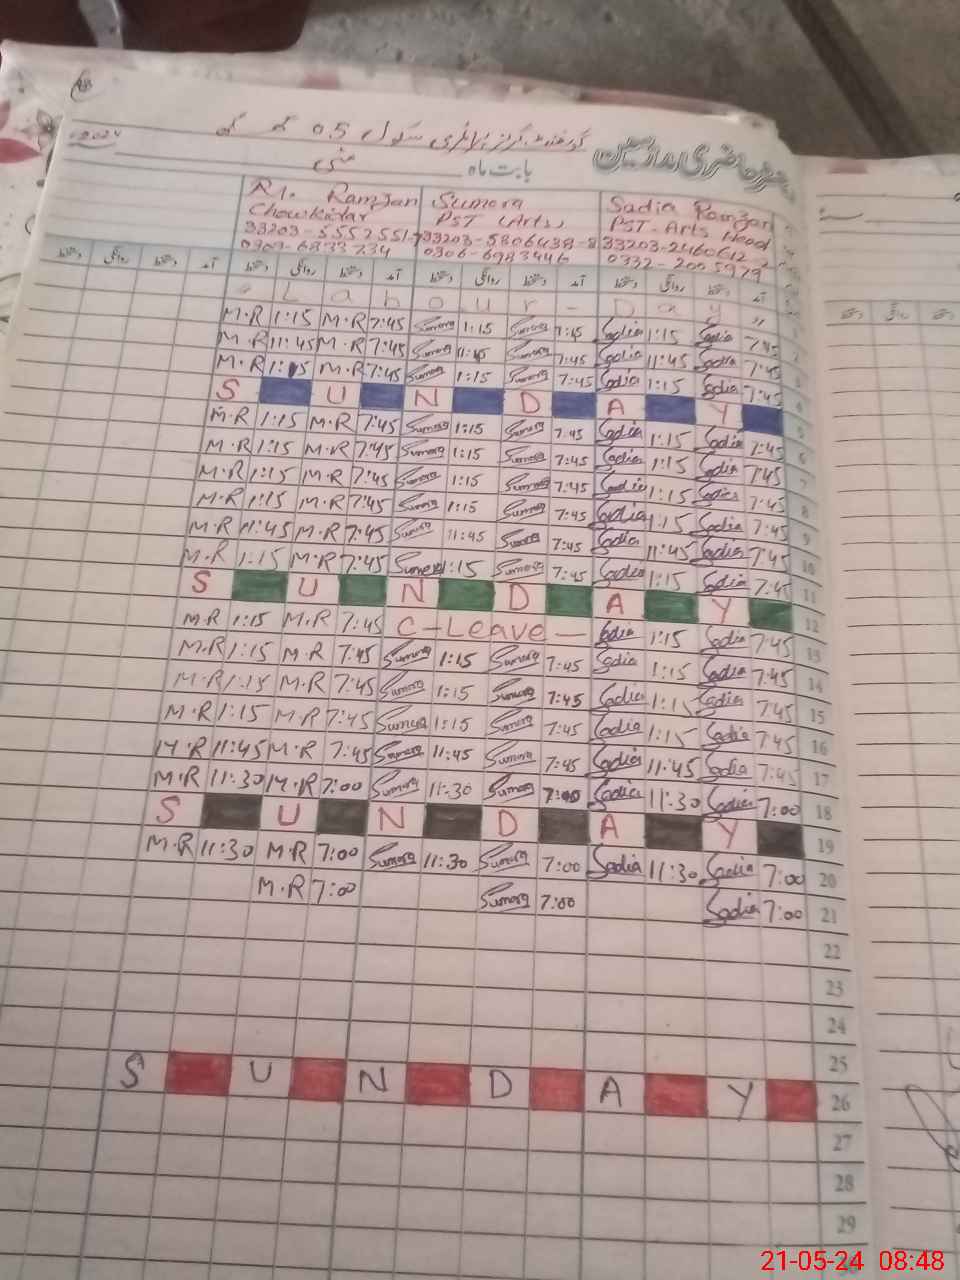 2024
گورنمنٹ گرلز پرائمری سکول 05 گھ گھ
بابت ماہ مئی
M. Ramzan Sumera Sadia Ramzan
Chowkidar PST (Arts) PST-Arts Head
0303-6833734 0306-6983446 0332-2005979
روانگی آمد روانگی آمد روانگی آمد
" L a b o u r - D a y "
M.R 1:15 M.R 7:45 Sumera 1:15 Sumera 7:45 Sadia 1:15 Sadia 7:45
M.R 11:45 M.R 7:45 Sumera 11:45 Sumera 7:45 Sadia 11:45 Sadia 7:45
M.R 1:15 M.R 7:45 Sumera 1:15 Sumera 7:45 Sadia 1:15 Sadia 7:45
S U N D A Y
M.R 1:15 M.R 7:45 Sumera 1:15 Sumera 7:45 Sadia 1:15 Sadia 7:45 6
M.R 1:15 M.R 7:45 Sumera 1:15 Sumera 7:45 Sadia 1:15 Sadia 7:45 7
M.R 1:15 M.R 7:45 Sumera 1:15 Sumera 7:45 Sadia 1:15 Sadia 7:45 8
M.R 1:15 M.R 7:45 Sumera 1:15 Sumera 7:45 Sadia 1:15 Sadia 7:45 9
M.R 11:45 M.R 7:45 Sumera 11:45 Sumera 7:45 Sadia 11:45 Sadia 7:45 10
M.R 1:15 M.R 7:45 Sumera 1:15 Sumera 7:45 Sadia 1:15 Sadia 7:45 11
S U N D A Y 12
M.R 1:15 M.R 7:45 C-Leave - Sadia 1:15 Sadia 7:45 13
M.R 1:15 M.R 7:45 Sumera 1:15 Sumera 7:45 Sadia 1:15 Sadia 7:45 14
M.R 1:15 M.R 7:45 Sumera 1:15 Sumera 7:45 Sadia 1:15 Sadia 7:45 15
M.R 1:15 M.R 7:45 Sumera 1:15 Sumera 7:45 Sadia 1:15 Sadia 7:45 16
M.R 11:45 M.R 7:45 Sumera 11:45 Sumera 7:45 Sadia 11:45 Sadia 7:45 17
M.R 11:30 M.R 7:00 Sumera 11:30 Sumera 7:00 Sadia 11:30 Sadia 7:00 18
S U N D A Y 19
M.R 11:30 M.R 7:00 Sumera 11:30 Sumera 7:00 Sadia 11:30 Sadia 7:00 20
M.R 7:00 Sumera 7:00 Sadia 7:00 21
22
23
24
25
S U N D A Y 26
27
28
29
21-05-24 08:48